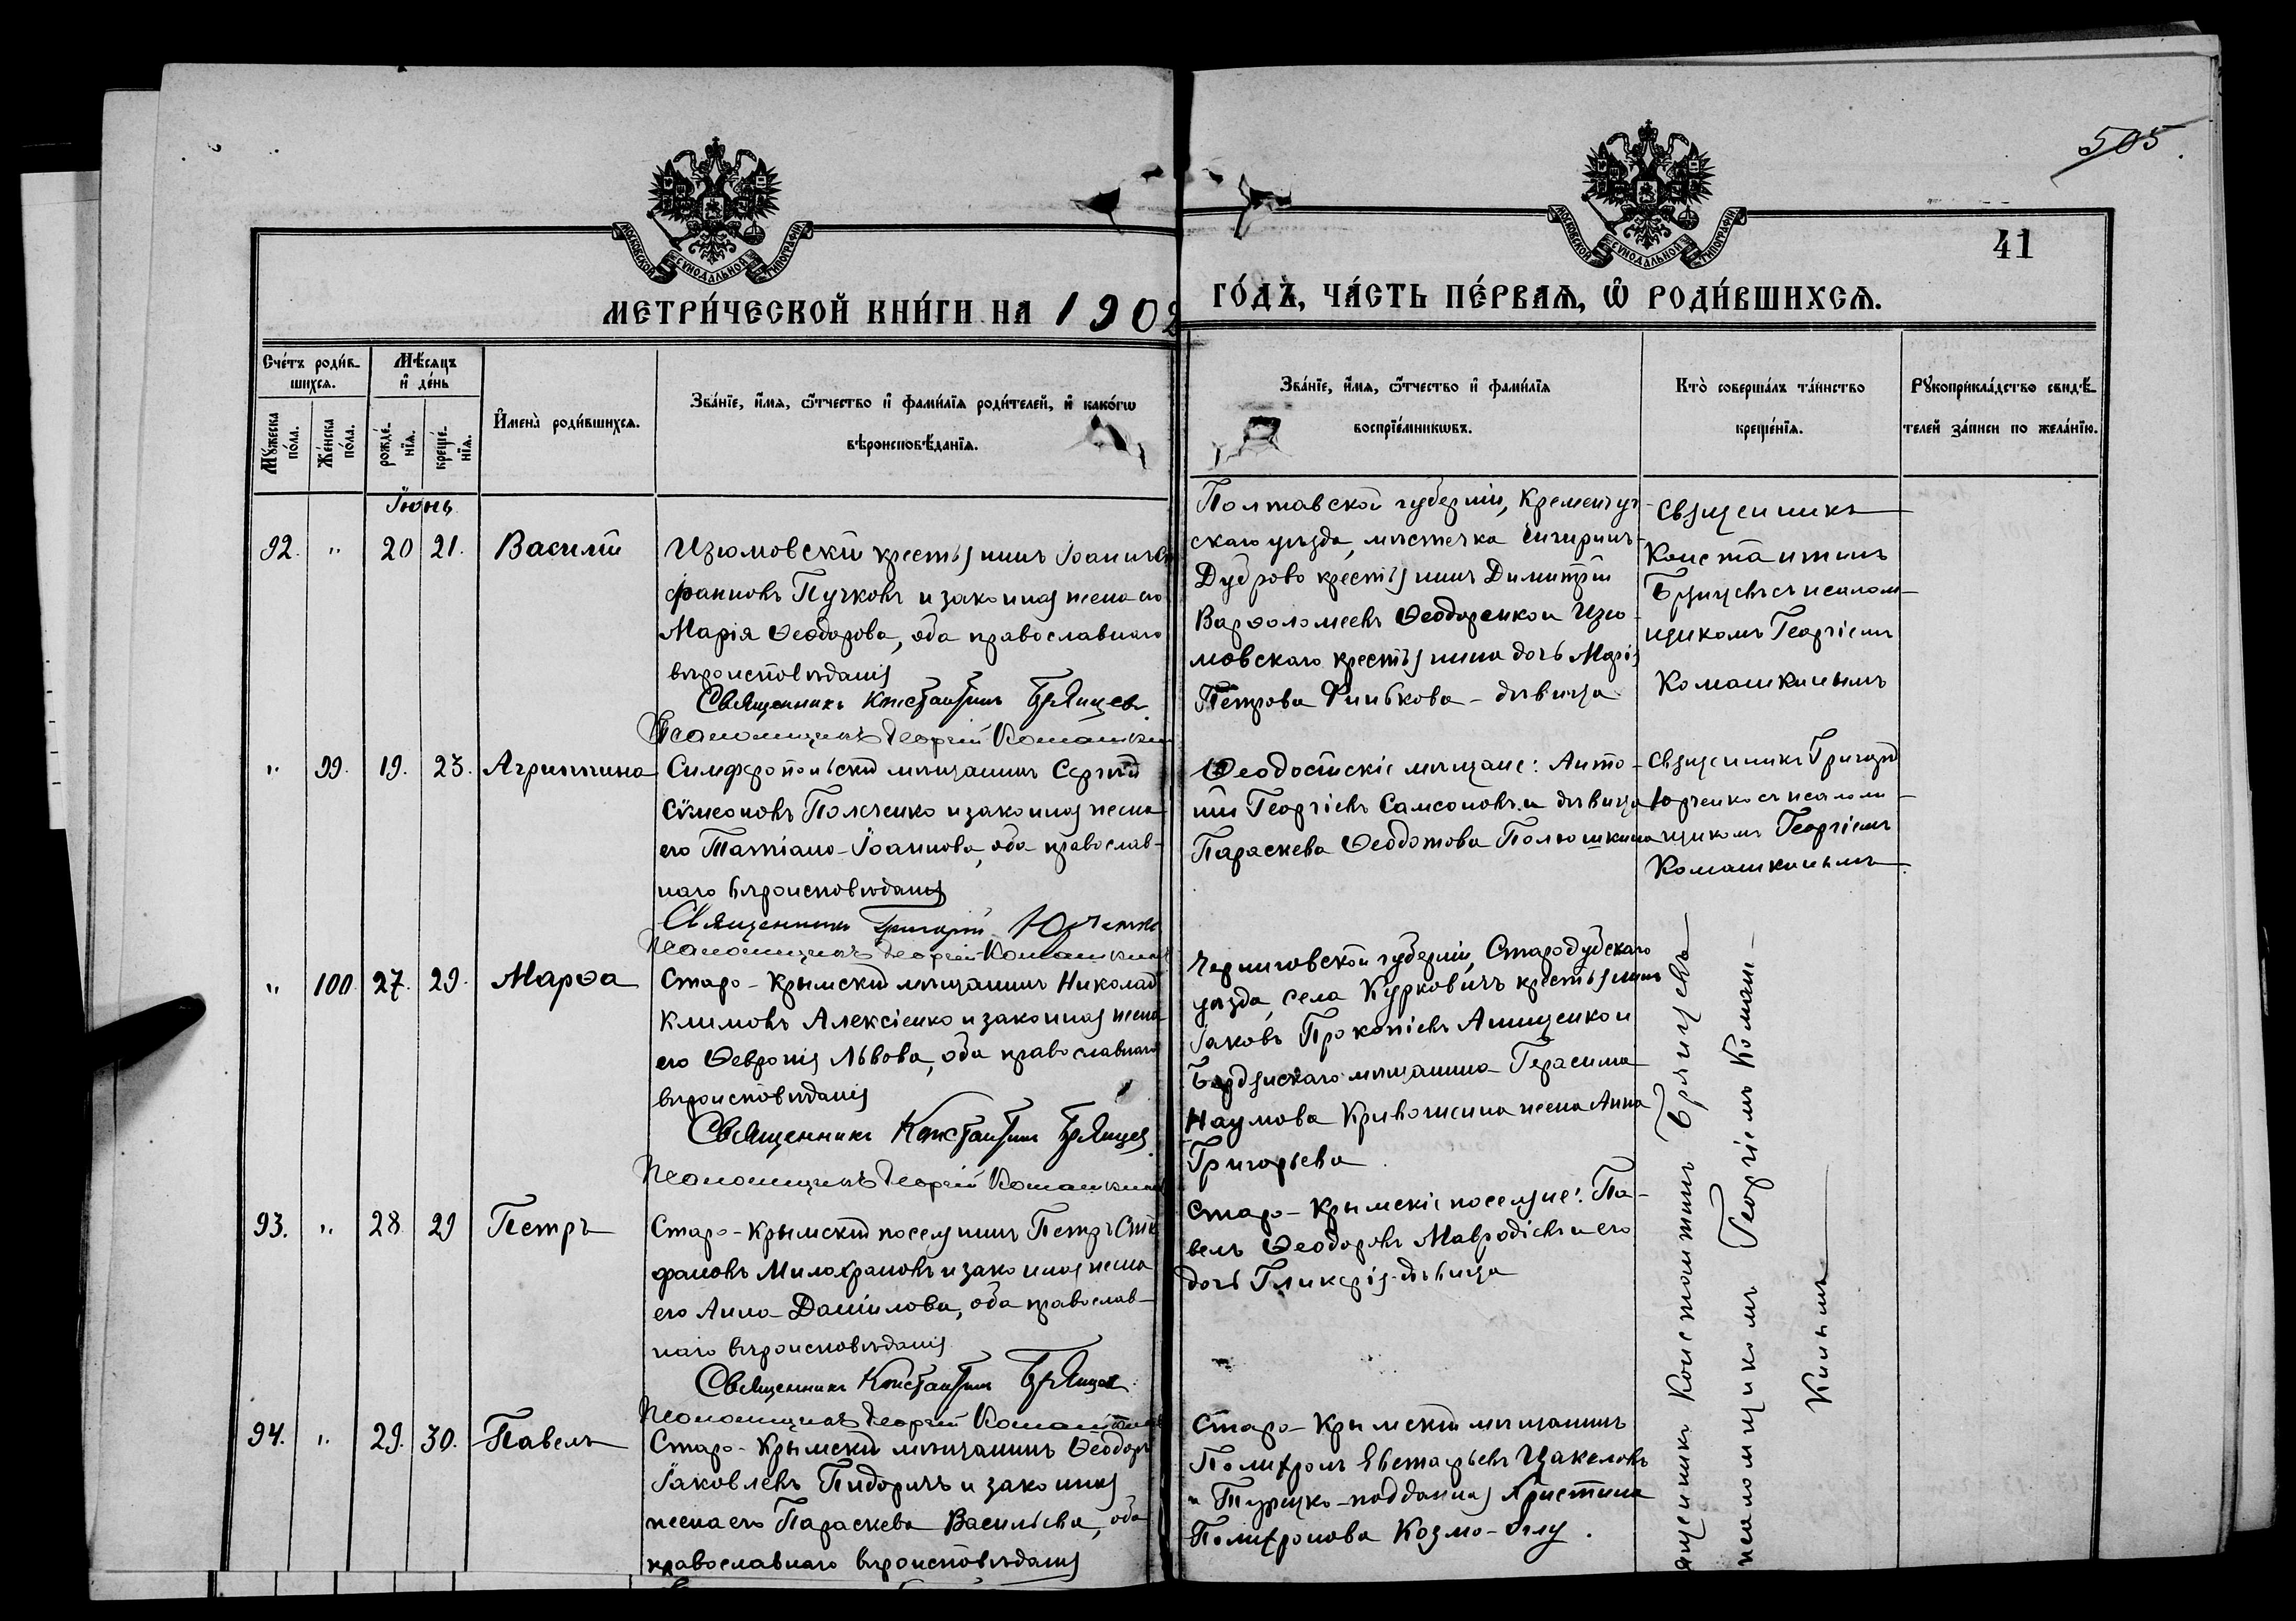 505.
41
МОСКОВСКОЙ СУНОДАЛЬНОЙ ТИПОГРАФІИ
МОСКОВСКОЙ СУНОДАЛЬНОЙ ТИПОГРАФІИ
МЕТРИ́ЧЕСКОЙ КНИ́ГИ НА 1902
ГО́ДЪ, ЧА́СТЬ ПЕ́РВАЯ, Ѡ҆ РОДИ́ВШИХСЯ.
Сче́тъ роди́в-
шихся.
Му́жеска
по́ла.
Же́нска
по́ла.
Мѣ́сяцъ
и҆ де́нь
рожде́-
нїя.
креще́-
нїя.
И҆мена̀ роди́вшихся.
Зва́нїе, и҆́мя, ѻ҆́тчество и҆ фами́лїя роди́телей, и҆ како́гѡ
вѣроисповѣ́данїя.
Зва́нїе, и҆́мя, ѻ҆́тчество и҆ фами́лїя
воспрїе́мникѡвъ.
Кто̀ соверша́лъ та́инство
креще́нїя.
Рꙋкоприкла́дство свидѣ́-
телей за́писи по жела́нїю.
Іюнь
92. " 20 21. Василій
Изюмовскій крестьянинъ Іоаннъ
фановъ Пучковъ и законная жена его
Марія Ѳеодорова, оба православнаго
вѣроисповѣданія
Священникъ Константинъ Брянцев
Псаломщикъ Георгій Комашкин
Полтавской губерніи, Кременчуг
скаго уѣзда, мѣстечка Чигиринъ-
Дуброво крестьянинъ Димитрій
Варѳоломеевъ Ѳеодоренко и Изю
мовскаго крестьянина дочь Марія
Петрова Финькова - дѣвица
Священникъ
Константинъ
Брянцевъ съ псалом-
щикомъ Георгіемъ
Комашкинымъ
" 99. 19. 23. Агриппина
Симферопольскій мѣщанинъ Сергѣй
Сѵмеоновъ Полченко и законная жена
его Татіана Іоаннова, оба православ-
наго вѣроисповѣданія
Священникъ Григорій Юрченко
Псаломщикъ Георгій Комашкин
Ѳеодосійскіе мѣщане: Анто-
ній Георгіевъ Самсоновъ и дѣвица
Параскева Ѳеодотова Полюшкина
Священникъ Григорій
Юрченко съ псалом-
щикомъ Георгіемъ
Комашкинымъ.
" 100 27. 29. Марѳа
Старо-Крымскій мѣщанинъ Николай
Климовъ Алексіенко и законная жена
его Ѳевронія Львова, оба православнаго
вѣроисповѣданія
Священникъ Константинъ Брянцев
Псаломщикъ Георгій Комашкин
Черниговской губерніи, Стародубскаго
уѣзда, села Курковичъ крестьянинъ
Іаковъ Прокопіевъ Анищенко и
Бердянскаго мѣщанина Герасима
Наумова Кривошеина жена Анна
Григорьева
93. " 28. 29 Петръ
Старо-Крымскій поселянинъ Петръ Сте
фановъ Милохрановъ и законная жена
его Анна Даніилова, оба православ-
наго вѣроисповѣданія
Священникъ Константинъ Брянцев
Псаломщикъ Георгій Комашкин
Старо-Крымскіе поселяне: Па-
велъ Ѳеодоровъ Мавродіевъ и его
дочь Гликерія дѣвица
94. " 29. 30. Павелъ
Старо-Крымскій мѣщанинъ Ѳеодоръ
Іаковлевъ Пидоричъ и законная
жена его Параскева Васильева, оба
православнаго вѣроисповѣданія
Старо-Крымскій мѣщанинъ
Полихронъ Евстафьевъ Цакеловъ
и Турецко-подданная Христина
Полихронова Козмо-Оглу.
ященникъ Константинъ Брянцевъ
псаломщикомъ Георгіемъ Комаш-
кинымъ